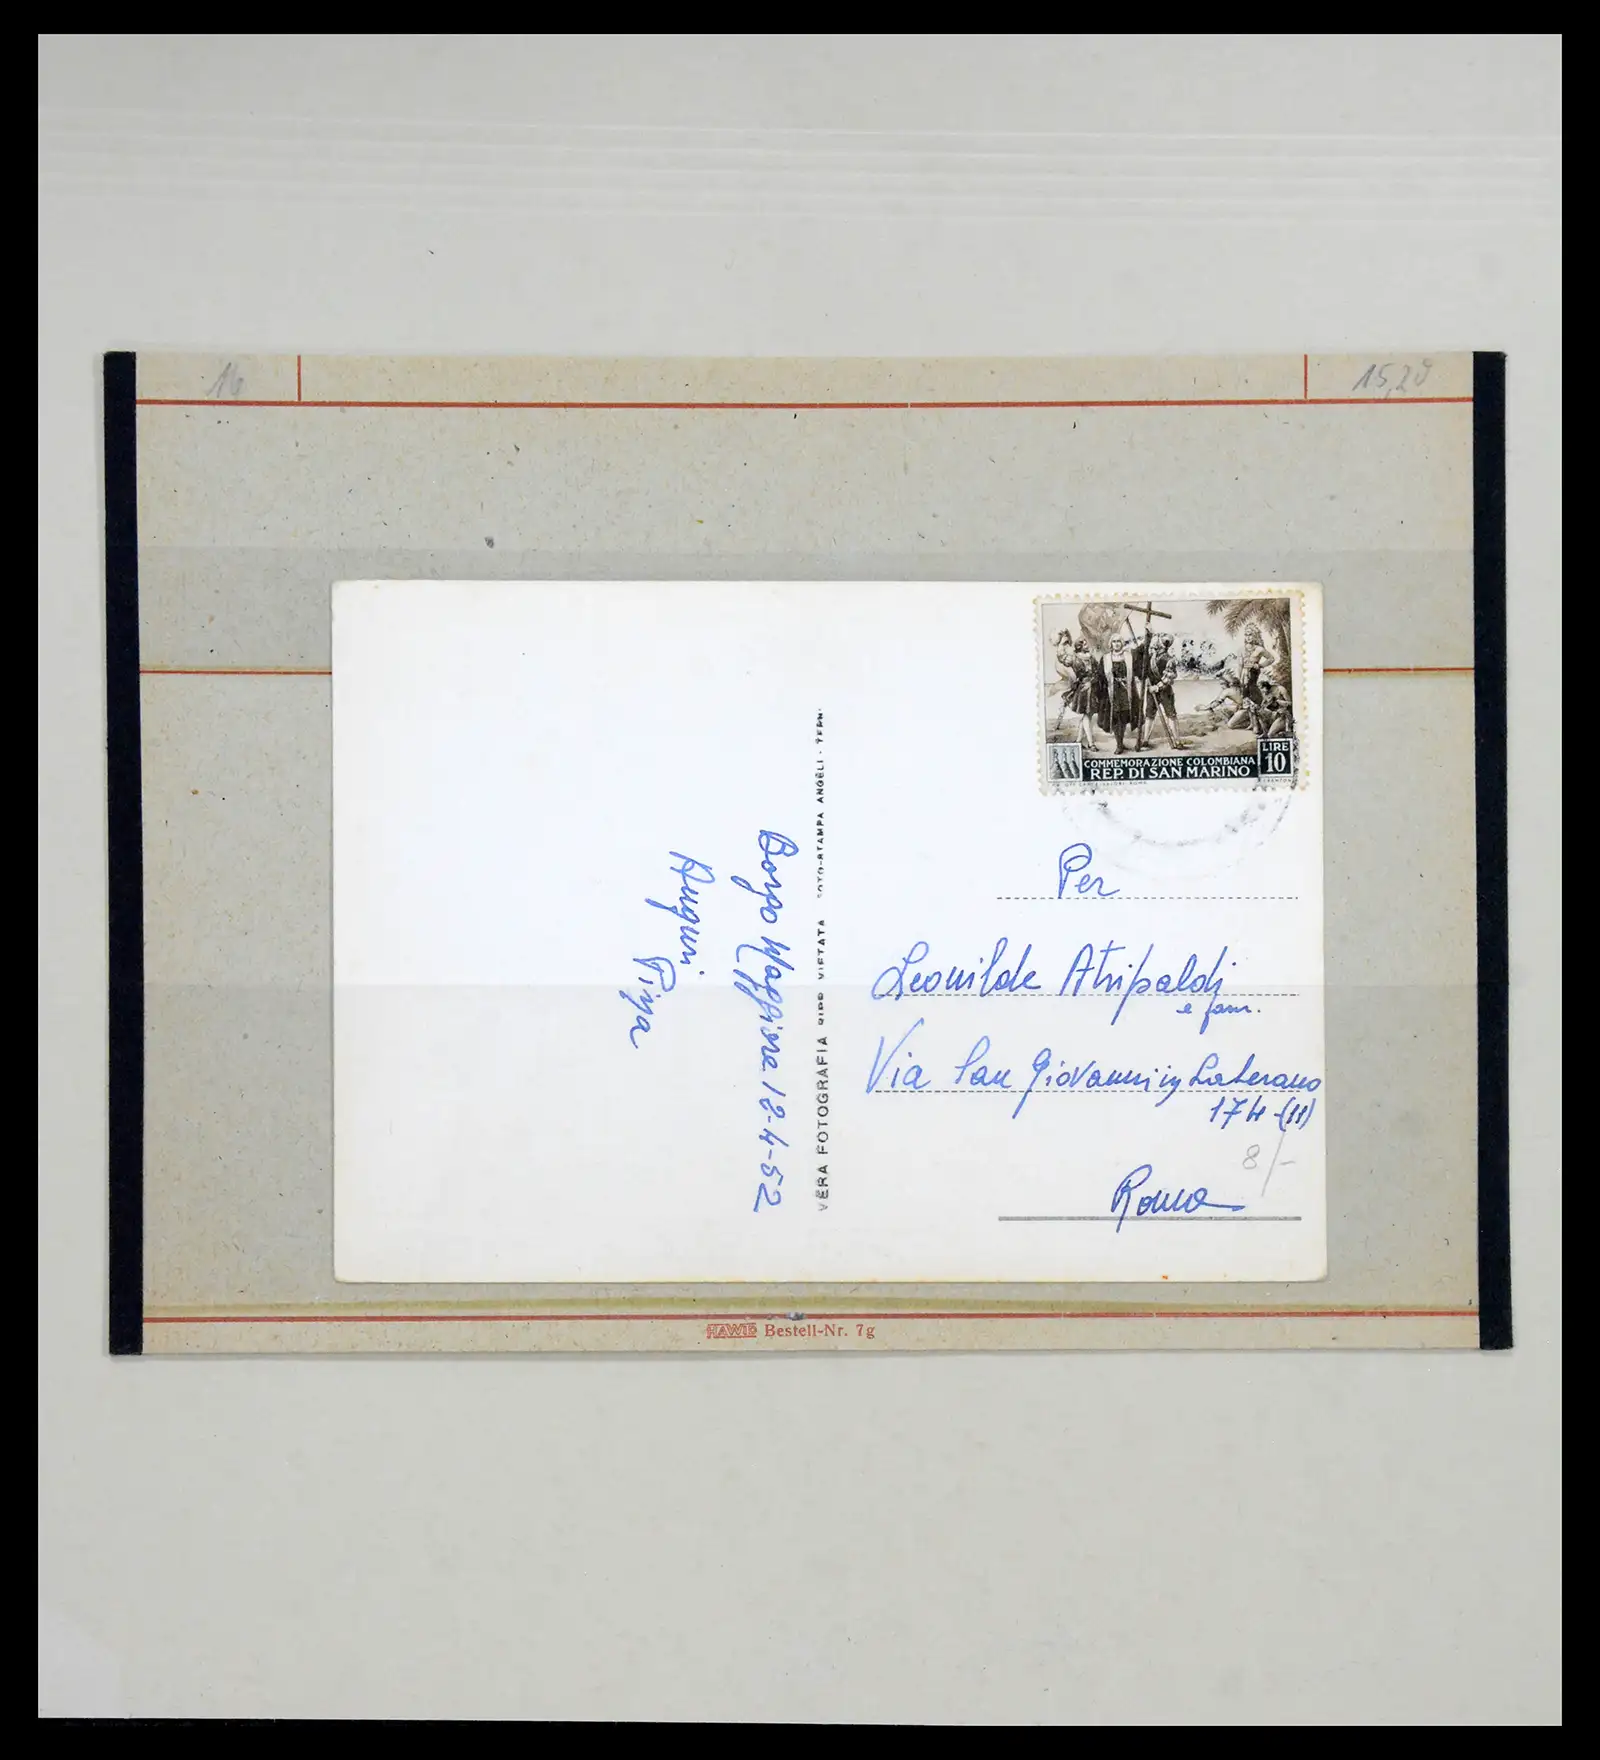 16
15,20
COMMEMORAZIONE COLOMBIANA
REP. DI SAN MARINO
LIRE
10
Borgo Maggiore 12-4-52
Auguri
VERA FOTOGRAFIA RIPR VIETATA FOTO-STAMPA ANGELI - TERNI
Per
Leonilde Atripaldi
e fam.
Via San Giovanni in Laterano
174-(11)
8/-
Roma
HAWID Bestell-Nr. 7g